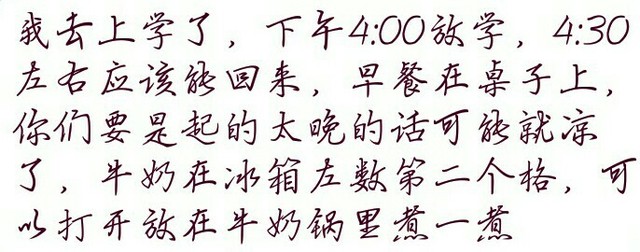 我去上学了，下午4:00放学，4:30
左右应该能回来，早餐在桌子上，
你们要是起的太晚的话可能就凉
了，牛奶在冰箱左数第二个格，可
以打开放在牛奶锅里煮一煮